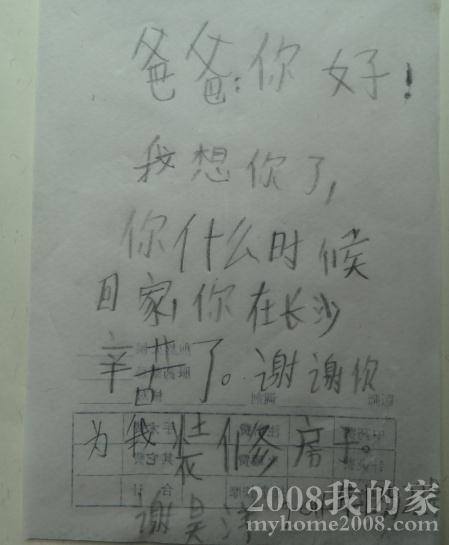 爸爸:你好!
我想你了,
你什么时候
回家,你在长沙
辛苦了。谢谢你
为我装修房子。
谢昊
2008我的家
myhome2008.com